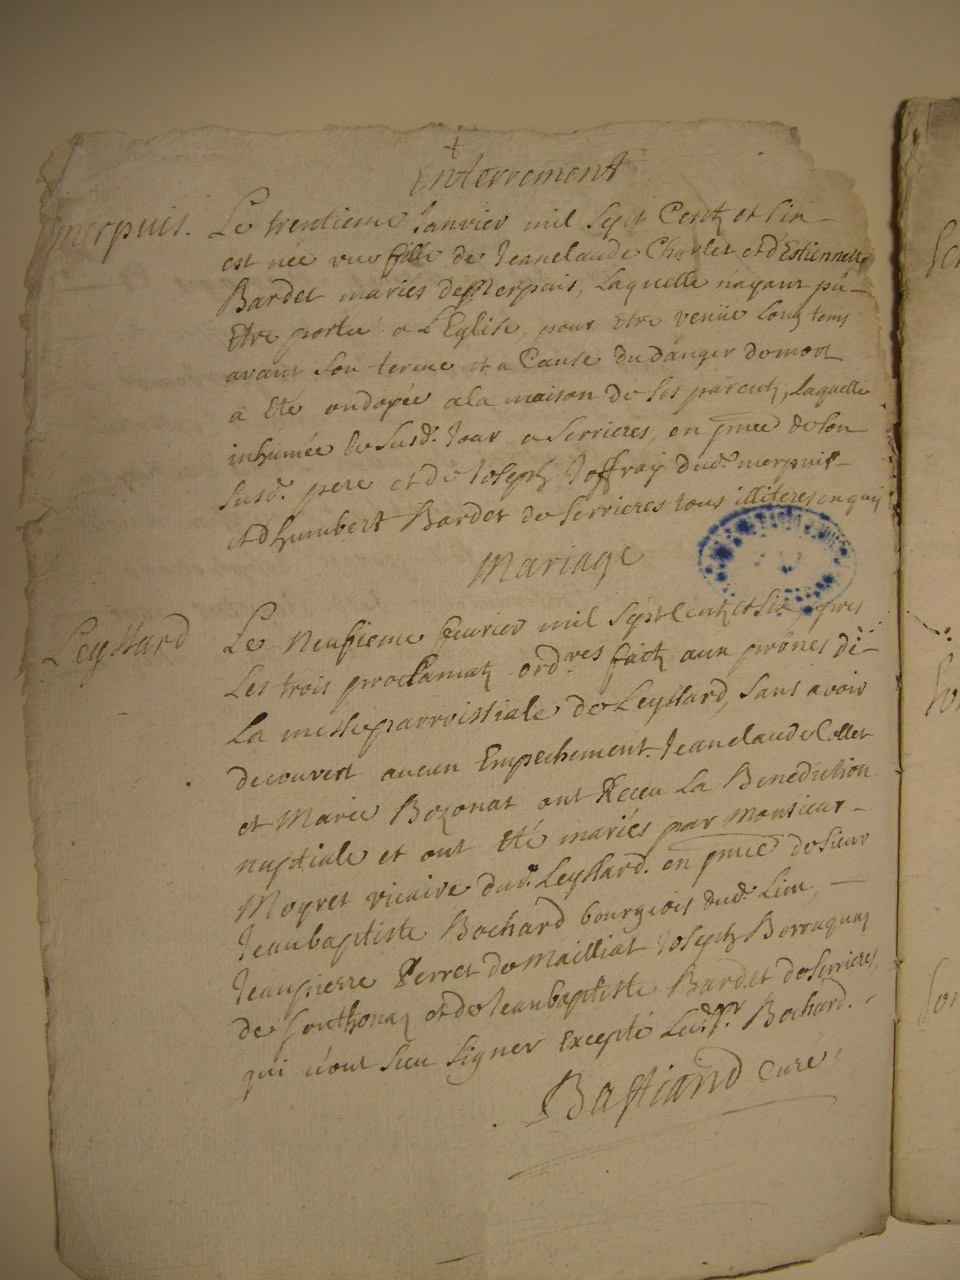 Enterrement
merpuis. Le trentieme Janvier mil sept Centz et six -
est née une fille de Jeanclaude Charlet et d'Estiennette
Bardet mariés de Merpuis, Laquelle n'ayant pû -
Etre portée a L'Eglise, pour Etre venüe Long tems
avant son terme et a Cause du danger de mort
a Eté ondoyée a la maison de ses parentz, Laquelle
inhumée Le susd. Jour a Serrieres, en pnce de son
susd. pere et de Joseph Joffray dud. merpuis -
et d'humbert Bardet de Serrieres tous illiteres enquis
Mariage
Leyssard Le Neufieme fevrier mil sept Centz et six, apres
Les trois proclamatz ordres faitz aux prônes de -
La messe parroissiale de Leyssard, sans avoir
decouvert aucun Empechement. Jeanclaude Collet
et Marie Bozonat ont Receu La Benediction
nuptiale et ont Eté mariés par Monsieur -
Moyret vicaire dud. Leyssard. en pnce de sieur
Jeanbaptiste Bochard bourgeois dud. Lieu, -
Jeanpierre Perret de Mailliat Joseph
de Sonthonaz et de Jeanbaptiste Bardet de Serrieres,
qui n'ont sceu signer Excepté Led. Sr Bochard. -
Bastiand Curé